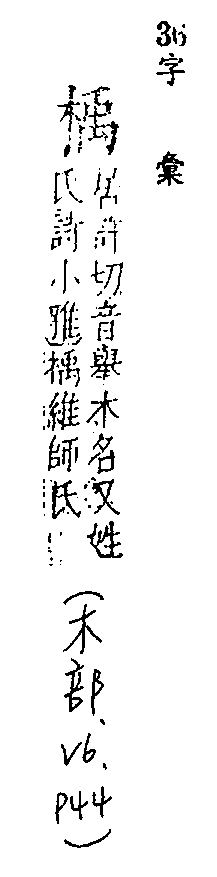 36字彙
楀
居許切音舉木名又姓
氏詩小雅楀維師氏
(木部、V6、P44)